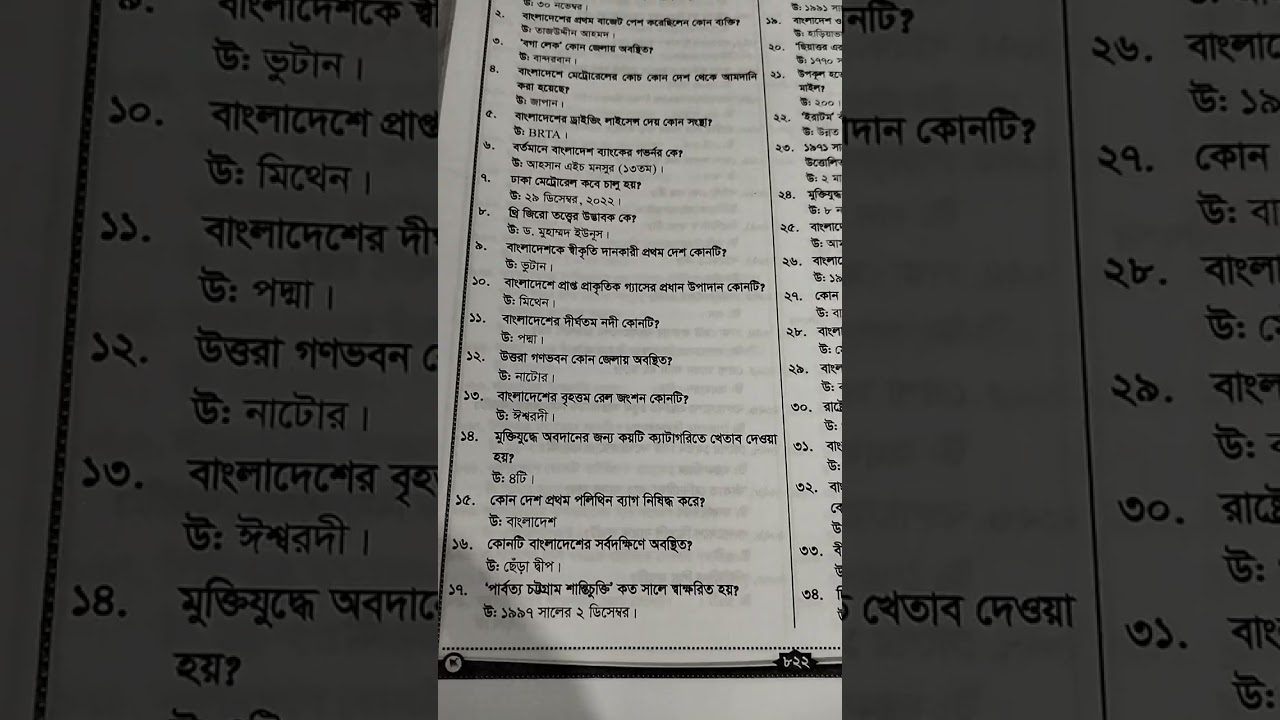 উ: ৩০ নভেম্বর।
২. বাংলাদেশের প্রথম বাজেট পেশ করেছিলেন কোন ব্যক্তি?
উ: তাজউদ্দীন আহমদ।
৩. 'বগা লেক' কোন জেলায় অবস্থিত?
উ: বান্দরবান।
৪. বাংলাদেশে মেট্রোরেলের কোচ কোন দেশ থেকে আমদানি
করা হয়েছে?
উ: জাপান।
৫. বাংলাদেশের ড্রাইভিং লাইসেন্স দেয় কোন সংস্থা?
উ: BRTA।
৬. বর্তমানে বাংলাদেশ ব্যাংকের গভর্নর কে?
উ: আহসান এইচ মনসুর (১৩তম)।
৭. ঢাকা মেট্রোরেল কবে চালু হয়?
উ: ২৯ ডিসেম্বর, ২০২২।
৮. থ্রি জিরো তত্ত্বের উদ্ভাবক কে?
উ: ড. মুহাম্মদ ইউনূস।
৯. বাংলাদেশকে স্বীকৃতি দানকারী প্রথম দেশ কোনটি?
উ: ভুটান।
১০. বাংলাদেশে প্রাপ্ত প্রাকৃতিক গ্যাসের প্রধান উপাদান কোনটি?
উ: মিথেন।
১১. বাংলাদেশের দীর্ঘতম নদী কোনটি?
উ: পদ্মা।
১২. উত্তরা গণভবন কোন জেলায় অবস্থিত?
উ: নাটোর।
১৩. বাংলাদেশের বৃহত্তম রেল জংশন কোনটি?
উ: ঈশ্বরদী।
১৪. মুক্তিযুদ্ধে অবদানের জন্য কয়টি ক্যাটাগরিতে খেতাব দেওয়া
হয়?
উ: ৪টি।
১৫. কোন দেশ প্রথম পলিথিন ব্যাগ নিষিদ্ধ করে?
উ: বাংলাদেশ
১৬. কোনটি বাংলাদেশের সর্বদক্ষিণে অবস্থিত?
উ: ছেঁড়া দ্বীপ।
১৭. 'পার্বত্য চট্টগ্রাম শান্তিচুক্তি' কত সালে স্বাক্ষরিত হয়?
উ: ১৯৯৭ সালের ২ ডিসেম্বর।
উ: ১৯৯১
১৯. বাংলাদেশ
উ:
২০.
উ: ১৭৭০
২১. উপকূল
মাইল?
উ: ২০০।
২২. 'ইরাটম'
উ: উন্নত
২৩. ১৯৭১
উ: ২
২৪.
উ: ৮
২৫.
উ:
২৬.
উ:
২৭. কোন
উ:
২৮.
উ:
২৯.
উ:
৩০.
উ:
৩১.
উ:
৩২.
৩৩.
৩৪.
৮২২